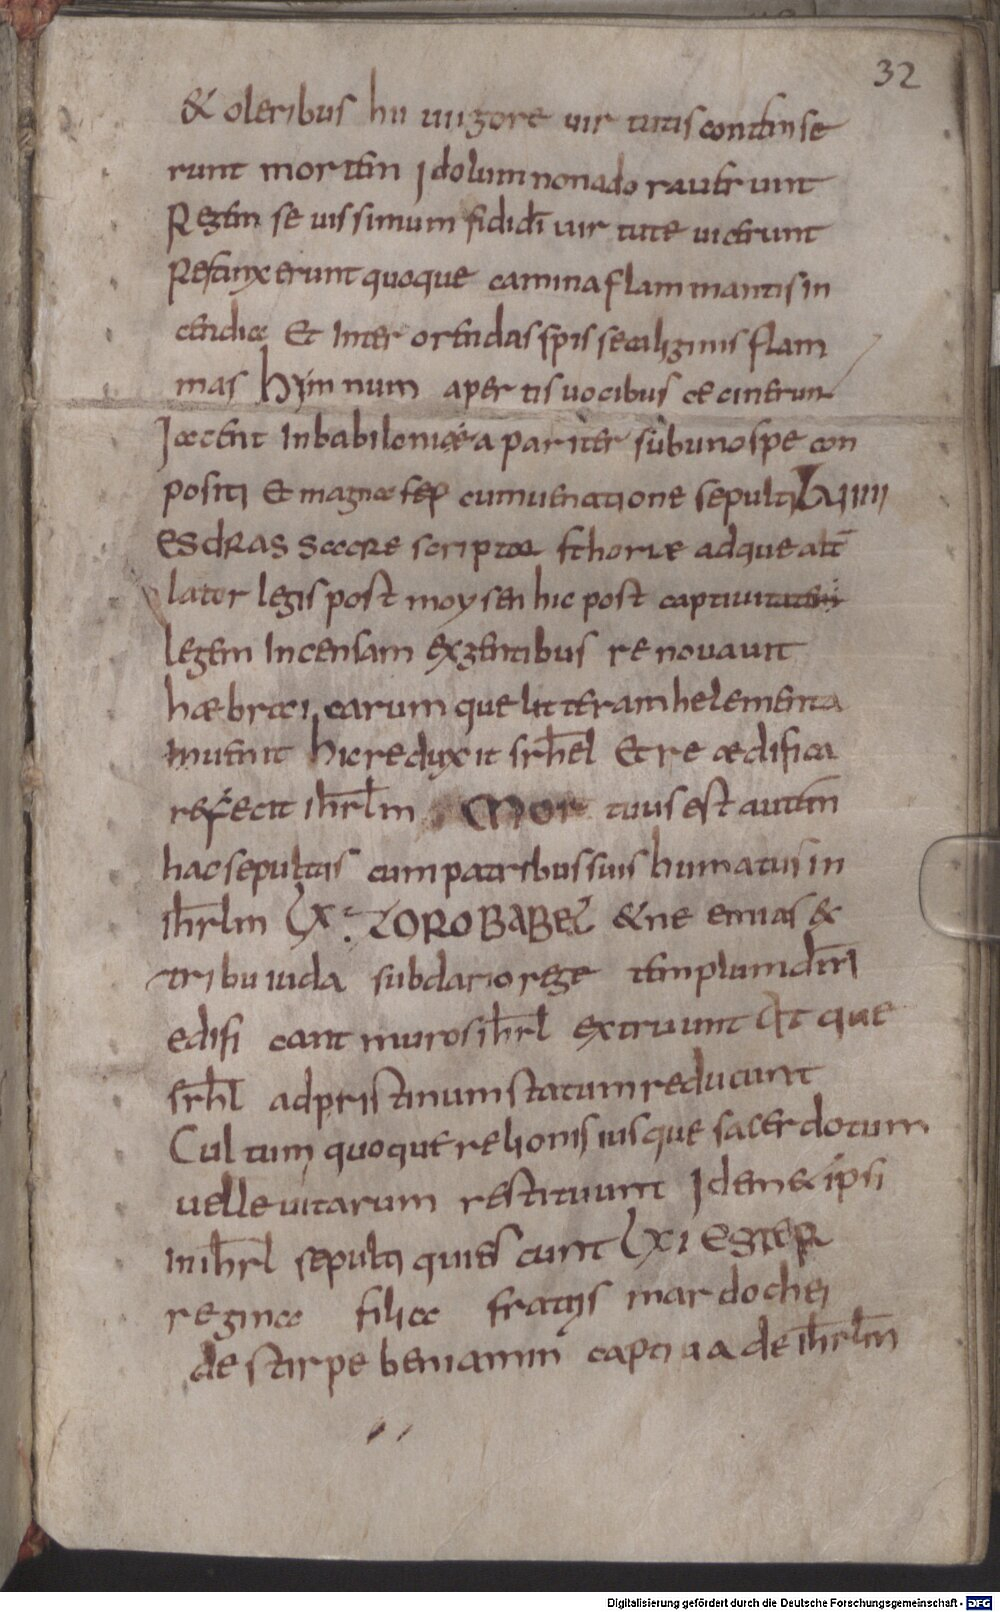 32
& oleribus hii uigore uirtutis contemse
runt mortem Idolum non adorauerunt
Regem seuissimum fidi di uirtute uicerunt
Restinxerunt quoque camina flammantis in
cendia Et Inter orrendas spissecaliginis flam
mas hymnum apertis uocibus cecinerunt
Iacent In babilonica pariter sub uno spe con
positi Et magna fep cumuenatione sepulti
ESdRAS SacRe scriptor sthoriae adque alt
lator legis post moysen hic post captiuitatem
legem Incensam ex gentibus renouauit
haebraei earumque litteram helementa
Inuenit hic reduxit srhel Et re aedifica
refecit ihrlm Mortuus est autem
hac sepultus cum patribus suis humatus in
ihrlm LX ZOROBABEL & neemias &
tribu iuda sub dario rege templum dni
edificant muros ihrl extruunt At que
srhl ad pristinum statum reducunt
Cultum quoque relionis iusque sacerdotum
uel leuitarum restituunt Idem & ipsi
in ihrl sepulti quiescunt LXI ESTER
regina filia fratris mardochei
de stirpe beniamin captiua de ihrlm
Digitalisierung gefördert durch die Deutsche Forschungsgemeinschaft - DFG